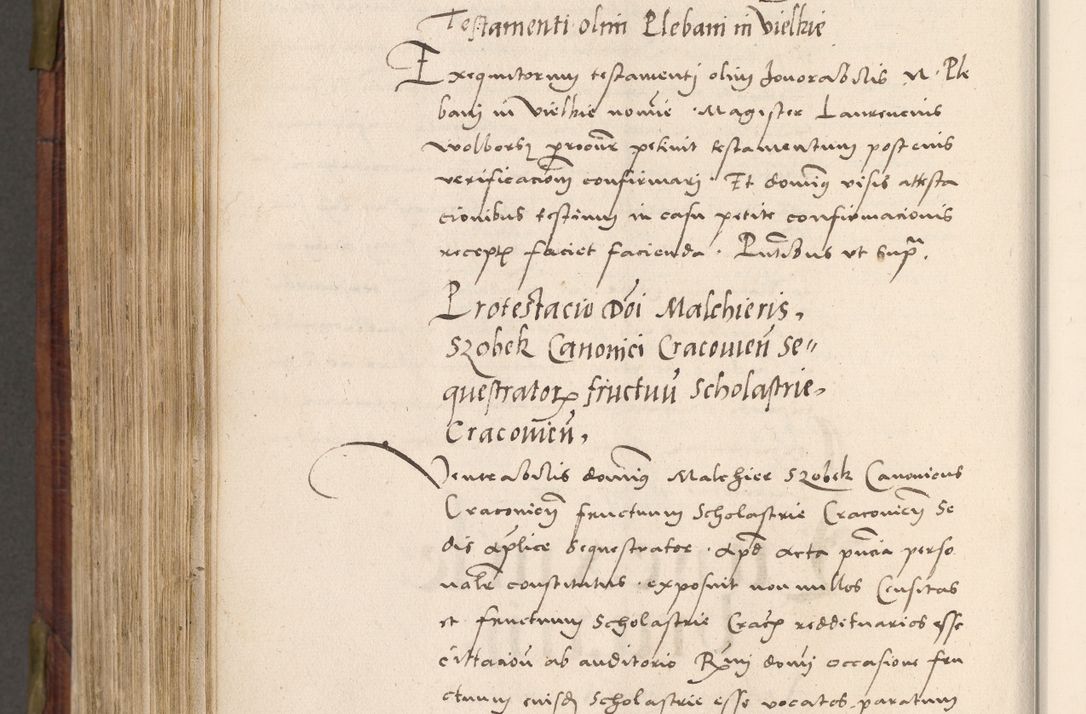 Testamenti olim Plebani in Vielkie
Exequutorum testamenti olim honorabilis N. Ple
bani in Vielkie nomie. Magister Laurencius
Wolborz procur petiuit testamentum post eius
verificacionem confirmari. Et dominus visis attesta
cionibus testium in casu petite confirmacionis
recept faciet facienda. Pntibus vt supra.
Protestacio Dni Malchieris,
Szobek Canonici Cracouien Se„
questrator fructuu Scholastrie,
Cracouien,
Venerabilis dominus Malchier Szobek Canonicus
Cracouien fructuum Scholastrie Cracouien Se
dis aplice Sequestrator. apd acta pncia perso
nalr constitutus. exposuit nonnullos Censitas
et fructuum Scholastrie Crac reddituarios esse
cittacion ab auditorio Rmi domi occasione fru
ctuum eiusd Scholastrie esse vocatos. paratum